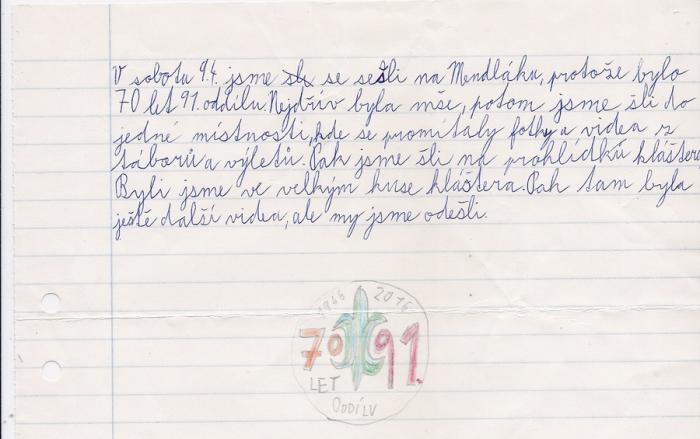 V sobotu 9.4. jsme se sešli na Mendláku, protože bylo
70 let 91. oddílu. Nejdřív byla mše, potom jsme šli do
jedné místnosti, kde se promítaly fotky a videa z
táborů a výletů. Pak jsme šli na prohlídku kláštera
Byli jsme ve velkým kuse kláštera. Pak tam byla
ještě další videa, ale my jsme odešli.
1946 2016
70 91.
LET
ODDÍLU